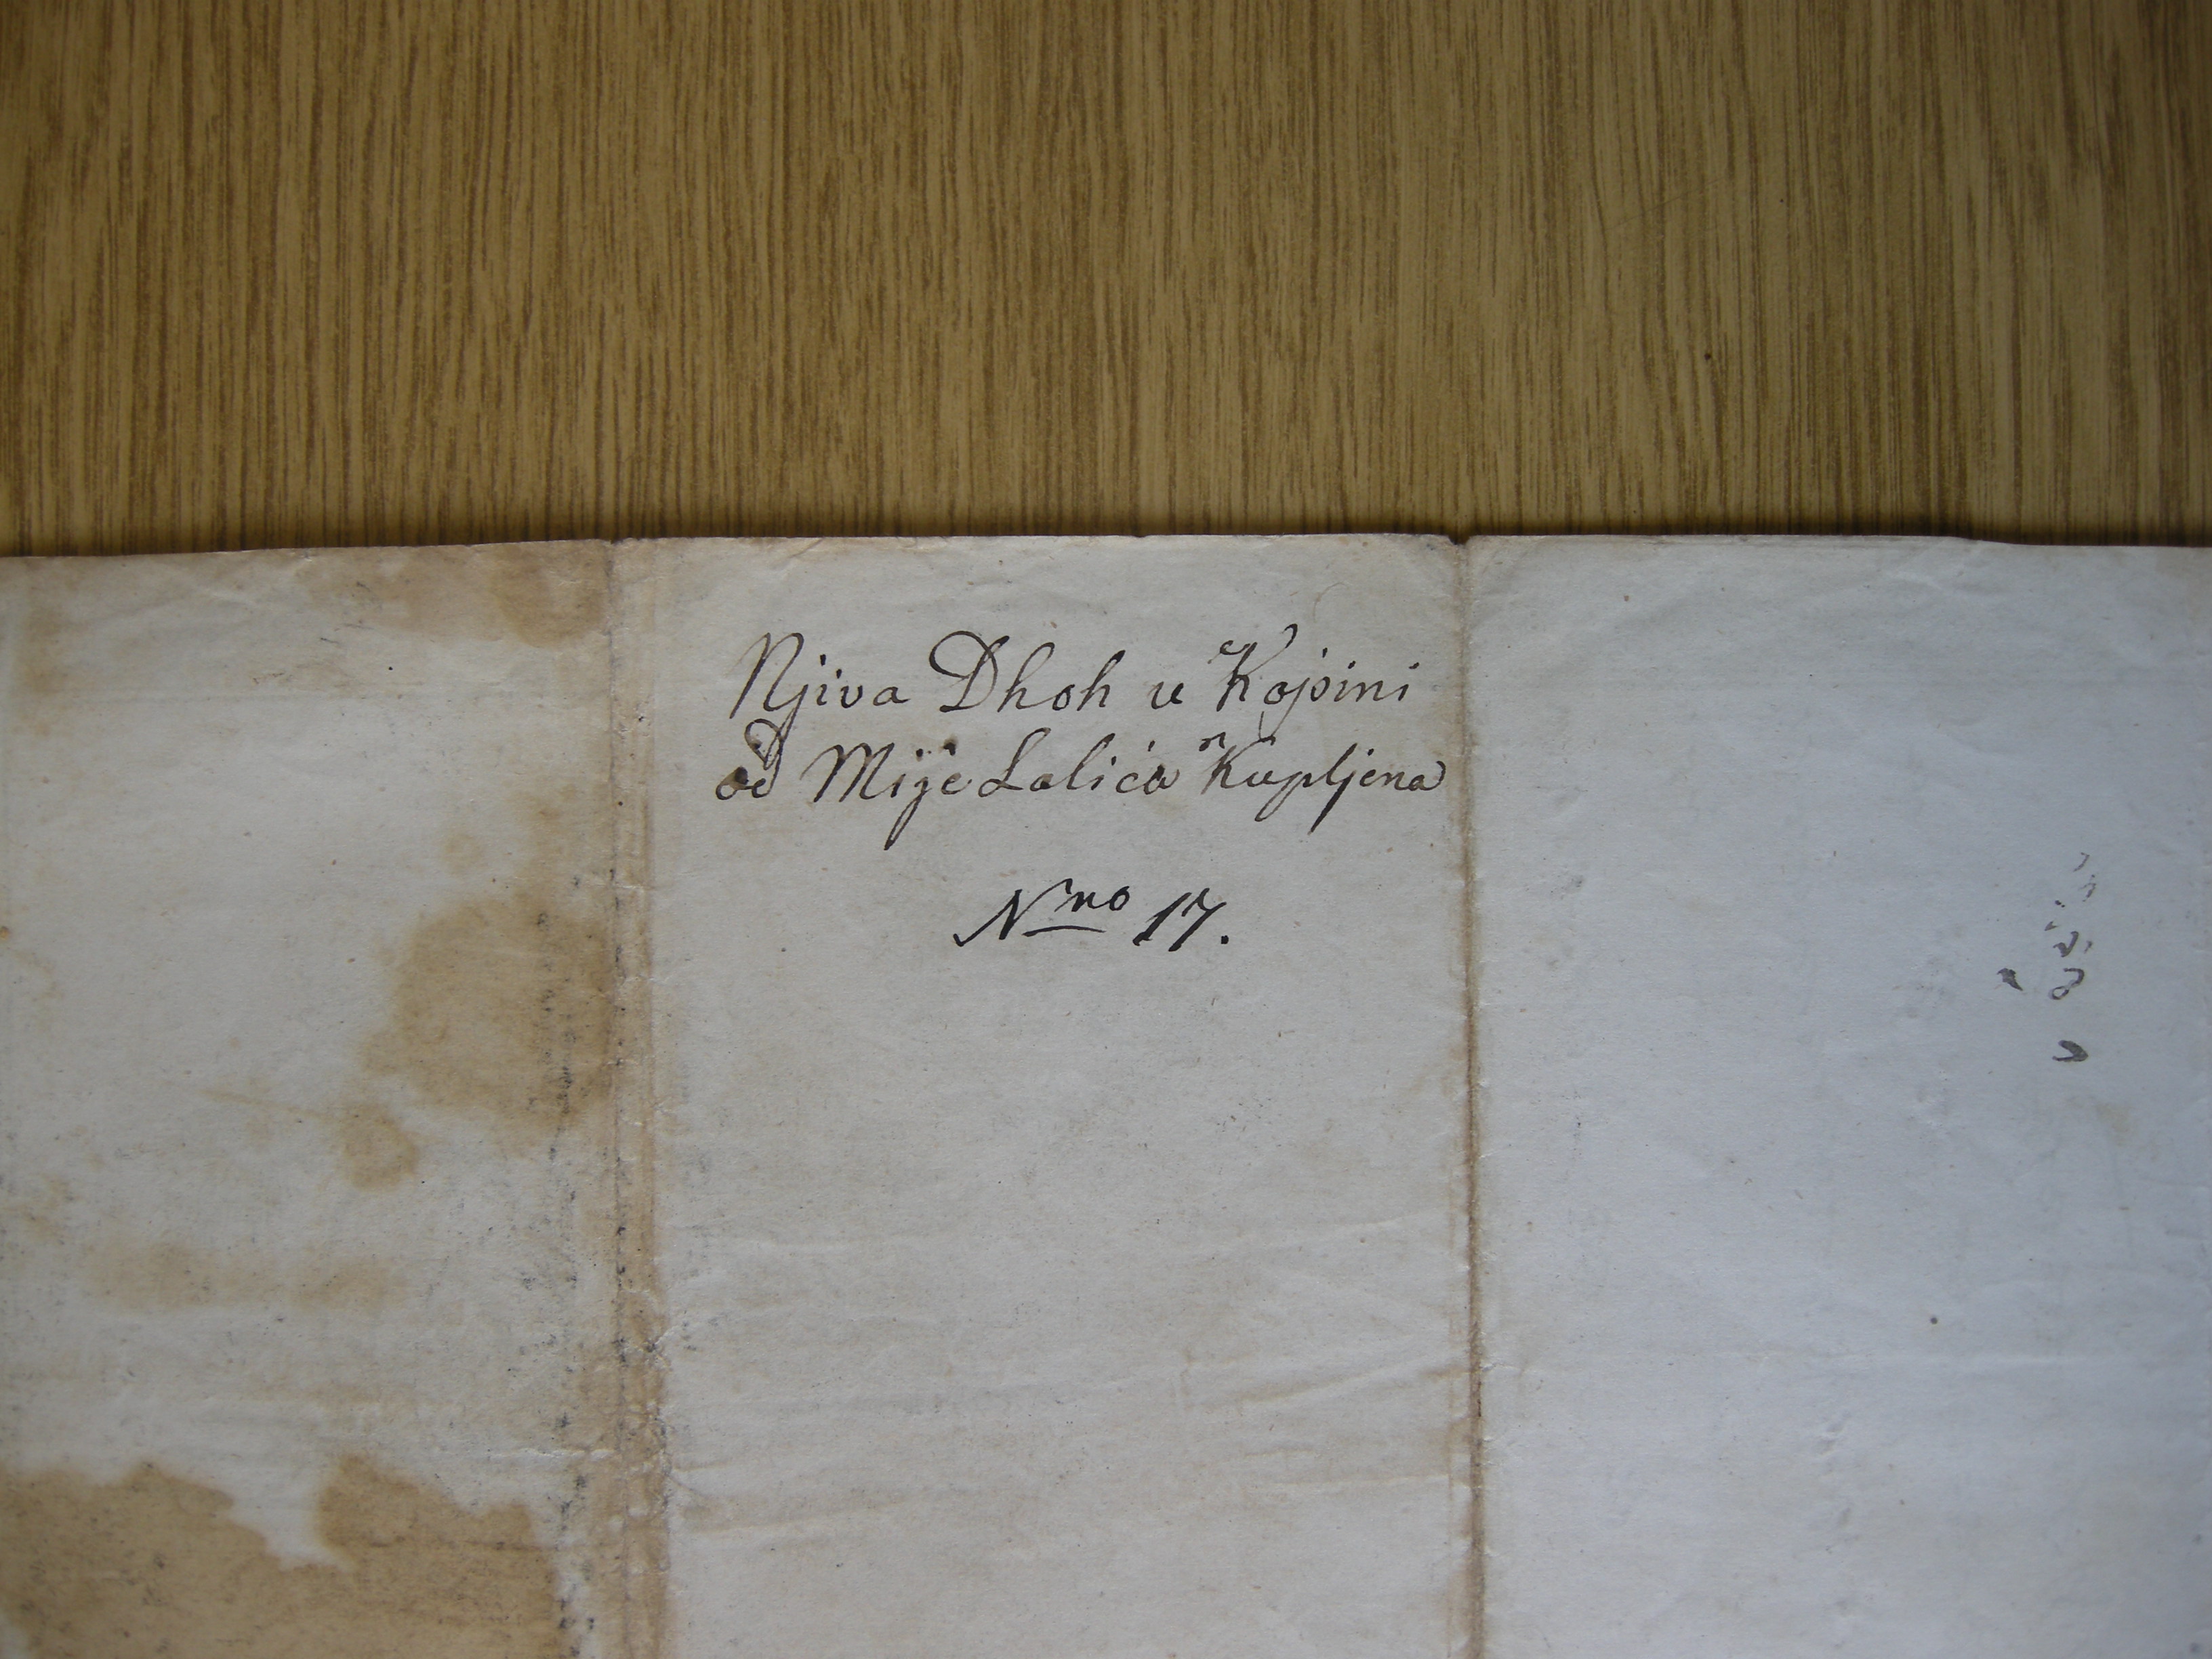 Njiva Dhoh u Kojsini
od Mije Lalića Kupljena
Nno 17.